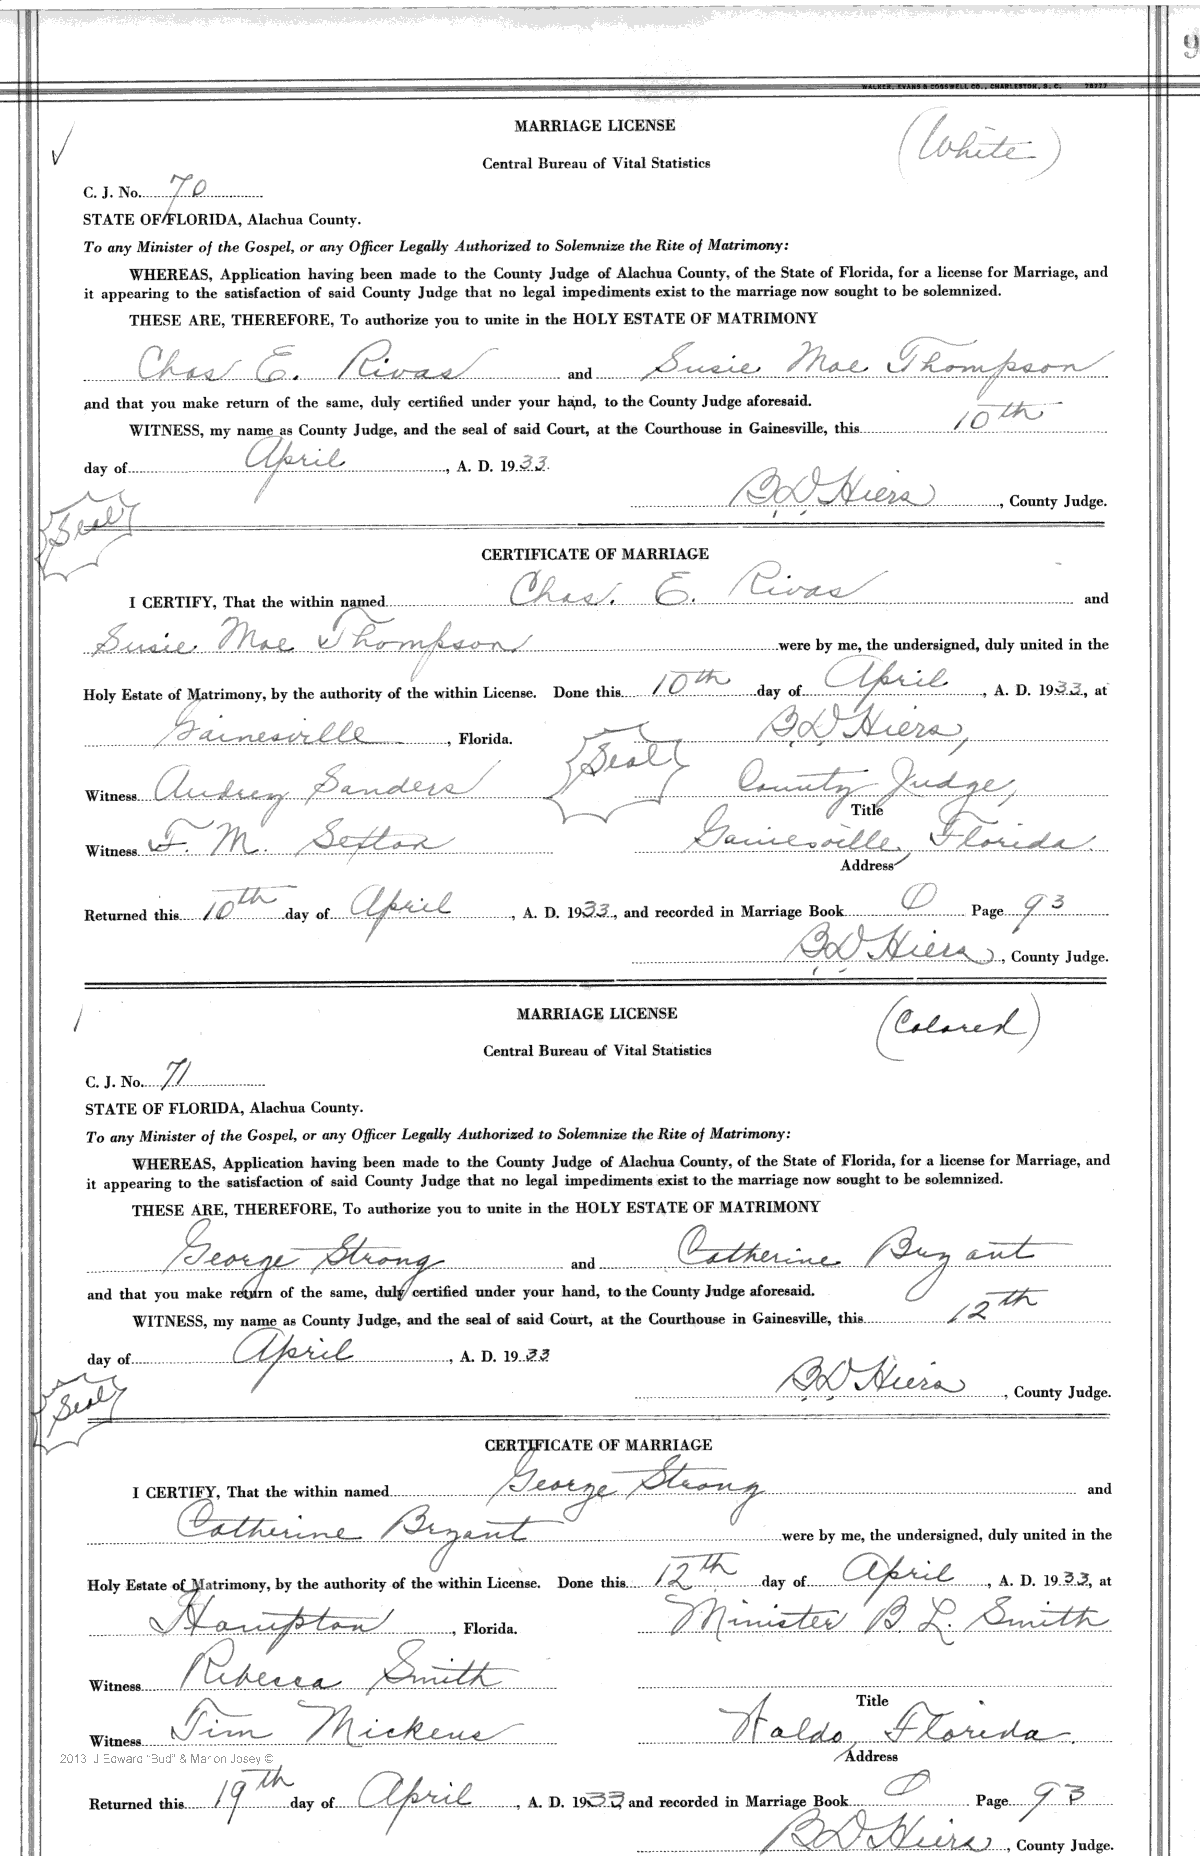 9
WALKER, EVANS & COGSWELL CO., CHARLESTON, S. C. 78777
MARRIAGE LICENSE
(White)
Central Bureau of Vital Statistics
C. J. No. 70
STATE OF FLORIDA, Alachua County.
To any Minister of the Gospel, or any Officer Legally Authorized to Solemnize the Rite of Matrimony:
WHEREAS, Application having been made to the County Judge of Alachua County, of the State of Florida, for a license for Marriage, and
it appearing to the satisfaction of said County Judge that no legal impediments exist to the marriage now sought to be solemnized.
THESE ARE, THEREFORE, To authorize you to unite in the HOLY ESTATE OF MATRIMONY
Chas E. Rivas and Susie Mae Thompson
and that you make return of the same, duly certified under your hand, to the County Judge aforesaid.
WITNESS, my name as County Judge, and the seal of said Court, at the Courthouse in Gainesville, this 10th
day of April, A. D. 1933.
B. D. Hiers, County Judge.
Seal
CERTIFICATE OF MARRIAGE
I CERTIFY, That the within named Chas. E. Rivas and
Susie Mae Thompson were by me, the undersigned, duly united in the
Holy Estate of Matrimony, by the authority of the within License. Done this 10th day of April, A. D. 1933, at
Gainesville, Florida. B. D. Hiers,
Seal
Witness Audrey Sanders County Judge,
Title
Witness F. M. Sexton Gainesville, Florida.
Address
Returned this 10th day of April, A. D. 1933, and recorded in Marriage Book O Page 93
B. D. Hiers, County Judge.
MARRIAGE LICENSE
(Colored)
Central Bureau of Vital Statistics
C. J. No. 71
STATE OF FLORIDA, Alachua County.
To any Minister of the Gospel, or any Officer Legally Authorized to Solemnize the Rite of Matrimony:
WHEREAS, Application having been made to the County Judge of Alachua County, of the State of Florida, for a license for Marriage, and
it appearing to the satisfaction of said County Judge that no legal impediments exist to the marriage now sought to be solemnized.
THESE ARE, THEREFORE, To authorize you to unite in the HOLY ESTATE OF MATRIMONY
George Strong and Catherine Bryant
and that you make return of the same, duly certified under your hand, to the County Judge aforesaid.
WITNESS, my name as County Judge, and the seal of said Court, at the Courthouse in Gainesville, this 12th
day of April, A. D. 1933
B. D. Hiers, County Judge.
Seal
CERTIFICATE OF MARRIAGE
I CERTIFY, That the within named George Strong and
Catherine Bryant were by me, the undersigned, duly united in the
Holy Estate of Matrimony, by the authority of the within License. Done this 12th day of April, A. D. 1933, at
Hampton, Florida. Minister B. L. Smith
Witness Rebecca Smith
Title
Witness Tim Mickens Waldo, Florida.
Address
2013 J Edward "Bud" & Marion Josey ©
Returned this 19th day of April, A. D. 1933 and recorded in Marriage Book O Page 93
B. D. Hiers, County Judge.